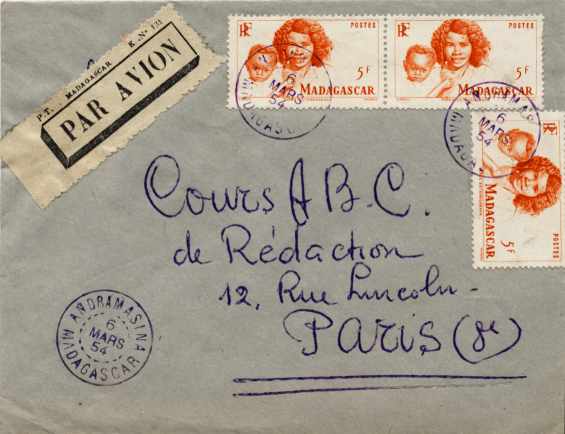 P.T. MADAGASCAR E.N° 131
PAR AVION
RF POSTES
5F
MADAGASCAR
RF POSTES
5F
MADAGASCAR
RF POSTES
5F
MADAGASCAR
6
MARS
54
ANDRAMASINA
6
MARS
54
MADAGASCAR
Cours A.B.C.
de Rédaction
12, Rue Lincoln-
PARIS (8e)
ANDRAMASINA
6
MARS
54
MADAGASCAR